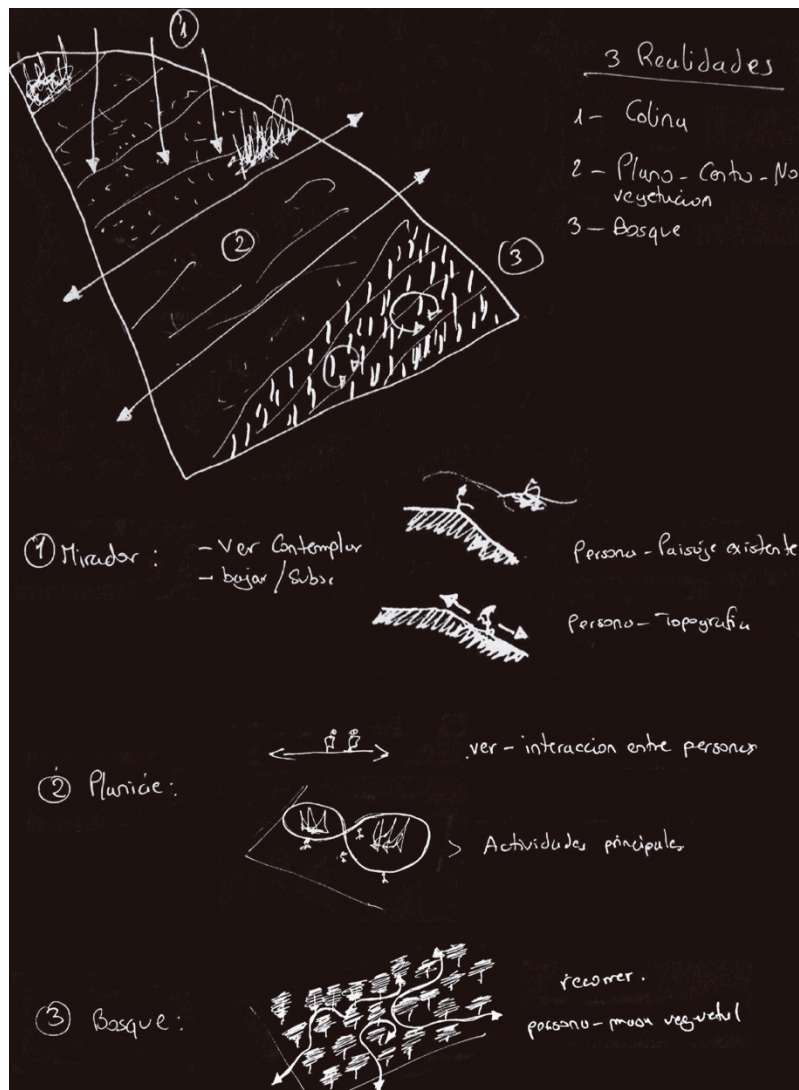 1
3 Realidades
1- Colina
2- Plano - Corto - No
vegetacion
3- Bosque
2
3
1 Mirador:
- Ver Contemplar
- bajar / Subir
Persona - Paisaje existente
Persona - Topografia
2 Planicie:
ver - interaccion entre personas
> Actividades principales
3 Bosque:
recorrer.
persona - masa vegetal